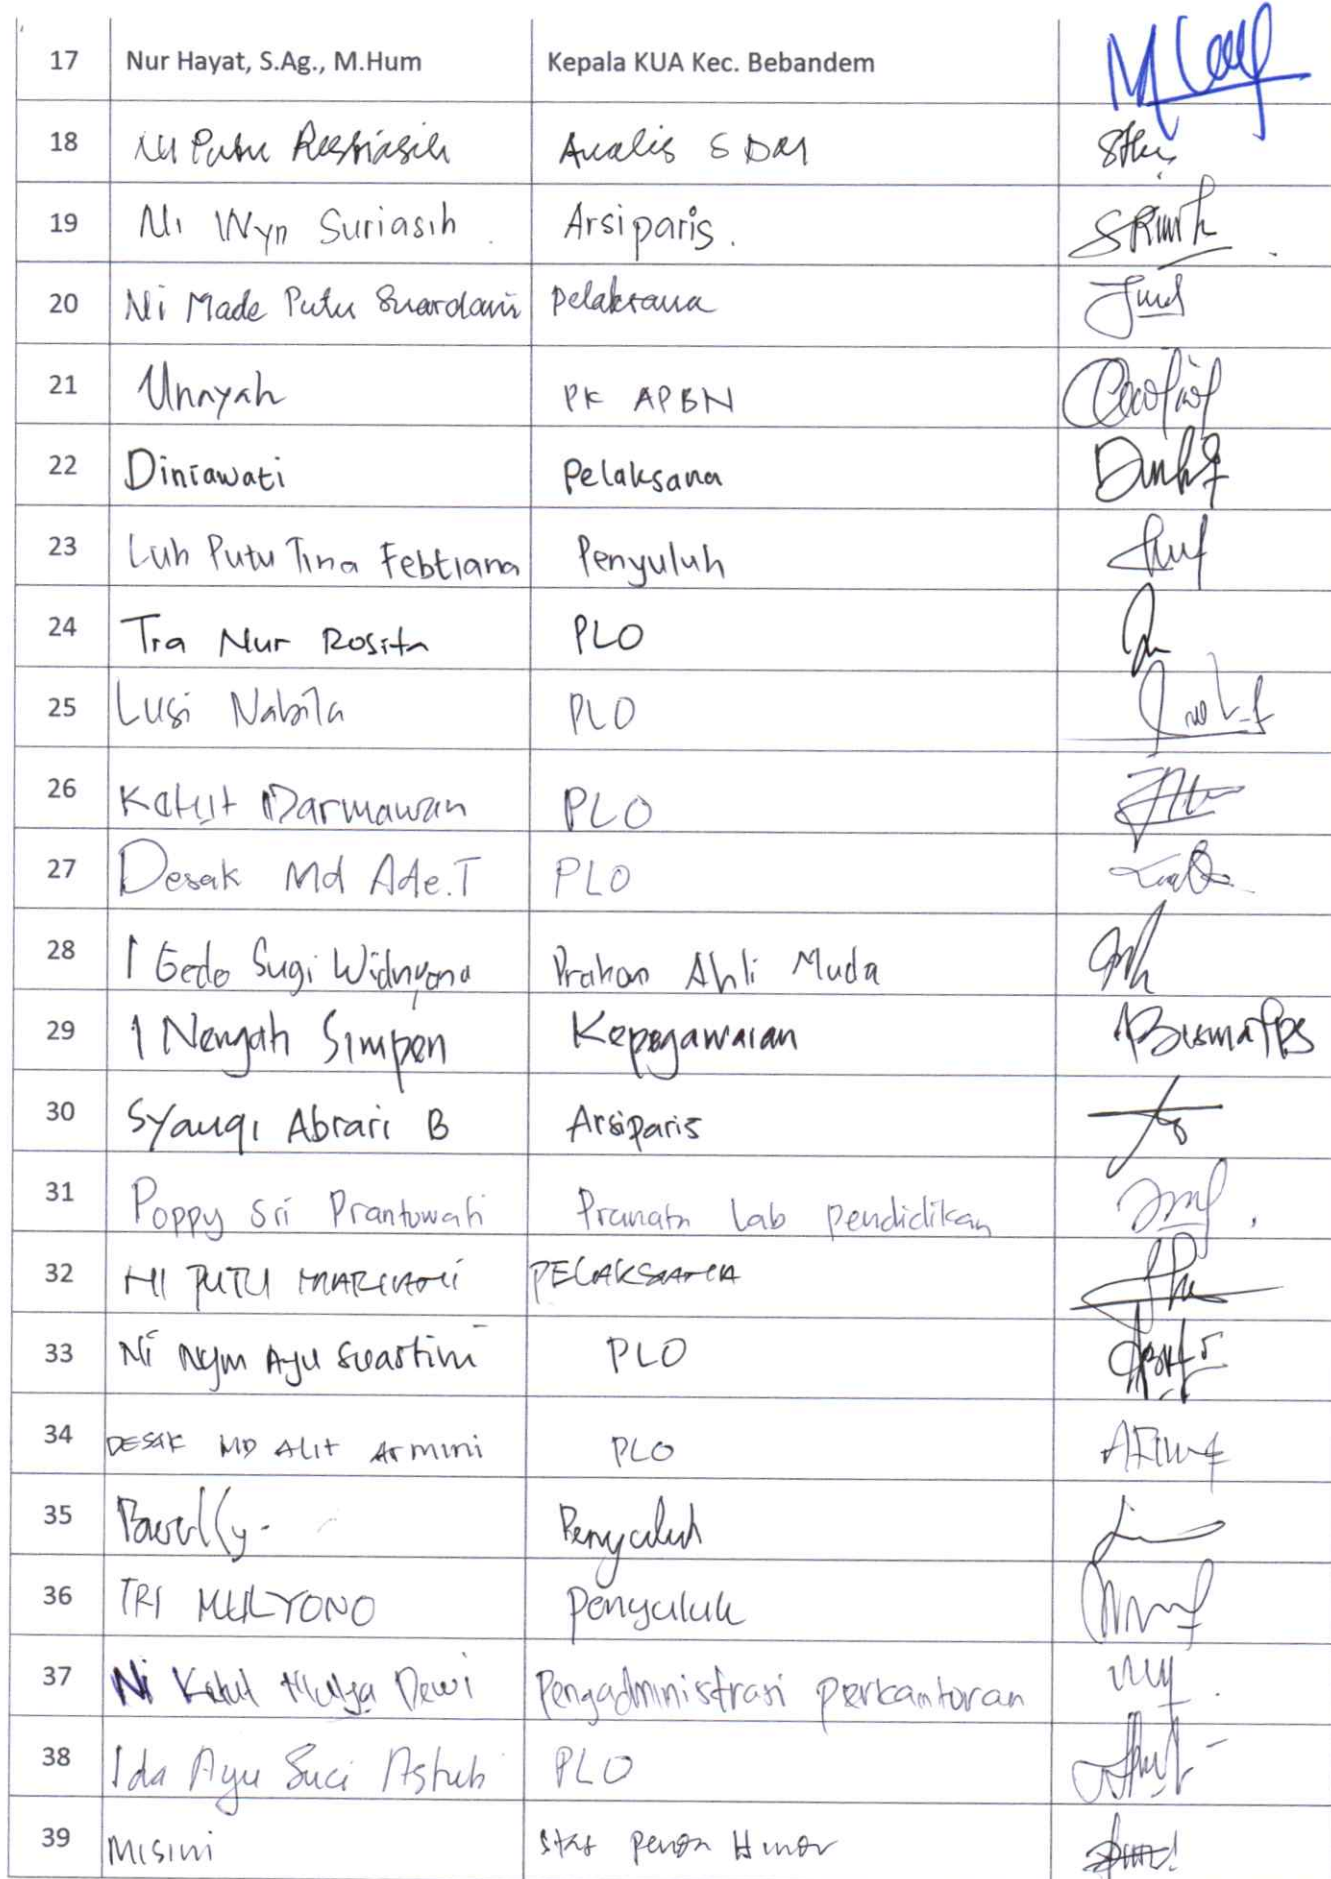 17 Nur Hayat, S.Ag., M.Hum Kepala KUA Kec. Bebandem
18 Ni Putu Restiasih Analis SDM
19 Ni Wyn Suriasih Arsiparis.
20 Ni Made Putu Suardani Pelaksana
21 Unayah PK APBN
22 Diniawati Pelaksana
23 Luh Putu Tina Febtiana Penyuluh
24 Tra Nur Rosita PLO
25 Lusi Nabila PLO
26 Ketut Darmawan PLO
27 Desak Md Ade.T PLO
28 I Gede Sugi Widnyana Prahum Ahli Muda
29 I Nengah Simpen Kepegawaian
30 Syauqi Abrari B Arsiparis
31 Poppy Sri Prantowati Pranata Lab pendidikan
32 NI PUTU PELAKSANA
33 Ni Nym Ayu Swastini PLO
34 DESAK MD Alit Armini PLO
35 Penyuluh
36 TRI MULYONO Penyuluh
37 Ni Ketut Mulya Dewi Pengadministrasi perkantoran
38 Ida Ayu Suci Astuti PLO
39 Misini